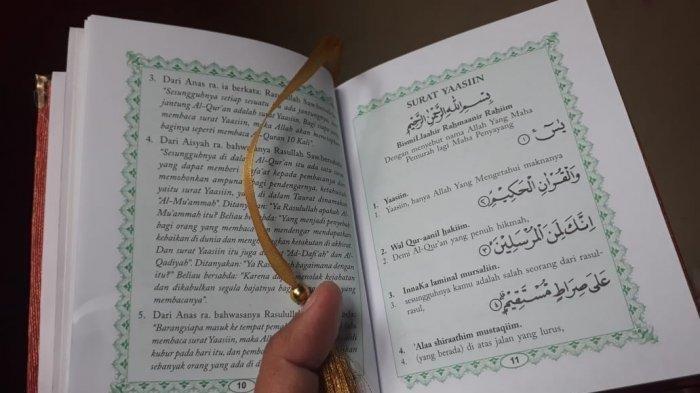 3. Dari Anas ra. ia berkata: Rasulullah Saw.
"Sesungguhnya setiap sesuatu ada jantungnya,
jantung Al-Qur'an adalah surat Yaasiin. Bagi siapa
membaca surat Yaasiin, maka Allah akan
baginya seperti membaca Al-Quran 10 Kali".
4. Dari Aisyah ra. bahwasanya Rasulullah Saw.
"Sesungguhnya di dalam Al-Qur'an itu ada surat
yang dapat memberi syafa'at kepada pembacanya dan
memohonkan ampunan bagi pendengarnya, ketahuilah
yaitu surat Yaasiin, yang di dalam Taurat dinamakan
"Al-Mu'ammah". Ditanyakan: "Ya Rasulullah apakah Al-
Mu'ammah itu?" Beliau bersabda: "Yang menjadi penyebab
bagi orang yang membacanya mendengar mendapatkan
kebaikan di dunia dan menghilangkan ketakutan di akhirat.
Dan surat Yaasiin itu juga dinamakan "Ad-Dafi'ah" dan Al-
Qadiyah". Ditanyakan: "Ya Rasulullah bagaimana dengan
itu?" Beliau bersabda: "Karena dapat menolak kejahatan
dan dikabulkan segala hajatnya bagi orang yang
membacanya".
5. Dari Anas ra. bahwasanya Rasulullah
"Barangsiapa masuk ke tempat
membaca surat Yaasiin, maka Allah
kubur pada hari itu, dan
sebanyak orang yang ada di dalam
10
SURAT YAASIIN
بِسْمِ اللّٰهِ الرَّحْمٰنِ الرَّحِيْمِ
BismiLlaahir Rahmaanir Rahiim
Dengan menyebut nama Allah Yang Maha
Pemurah lagi Maha Penyayang
يٰسۤ ۚ ﴿١﴾
1. Yaasiin.
1. Yaasiin, hanya Allah Yang Mengetahui maknanya
وَالْقُرْاٰنِ الْحَكِيْمِ ﴿٢﴾
2. Wal Qur-aanil hakiim.
2. Demi Al-Qur'an yang penuh hikmah,
اِنَّكَ لَمِنَ الْمُرْسَلِيْنَ ﴿٣﴾
3. InnaKa laminal mursaliin.
3. sesungguhnya kamu adalah salah seorang dari rasul-
rasul,
عَلٰى صِرَاطٍ مُّسْتَقِيْمٍ ﴿٤﴾
4. 'Alaa shiraathim mustaqiim.
4. (yang berada) di atas jalan yang lurus,
11